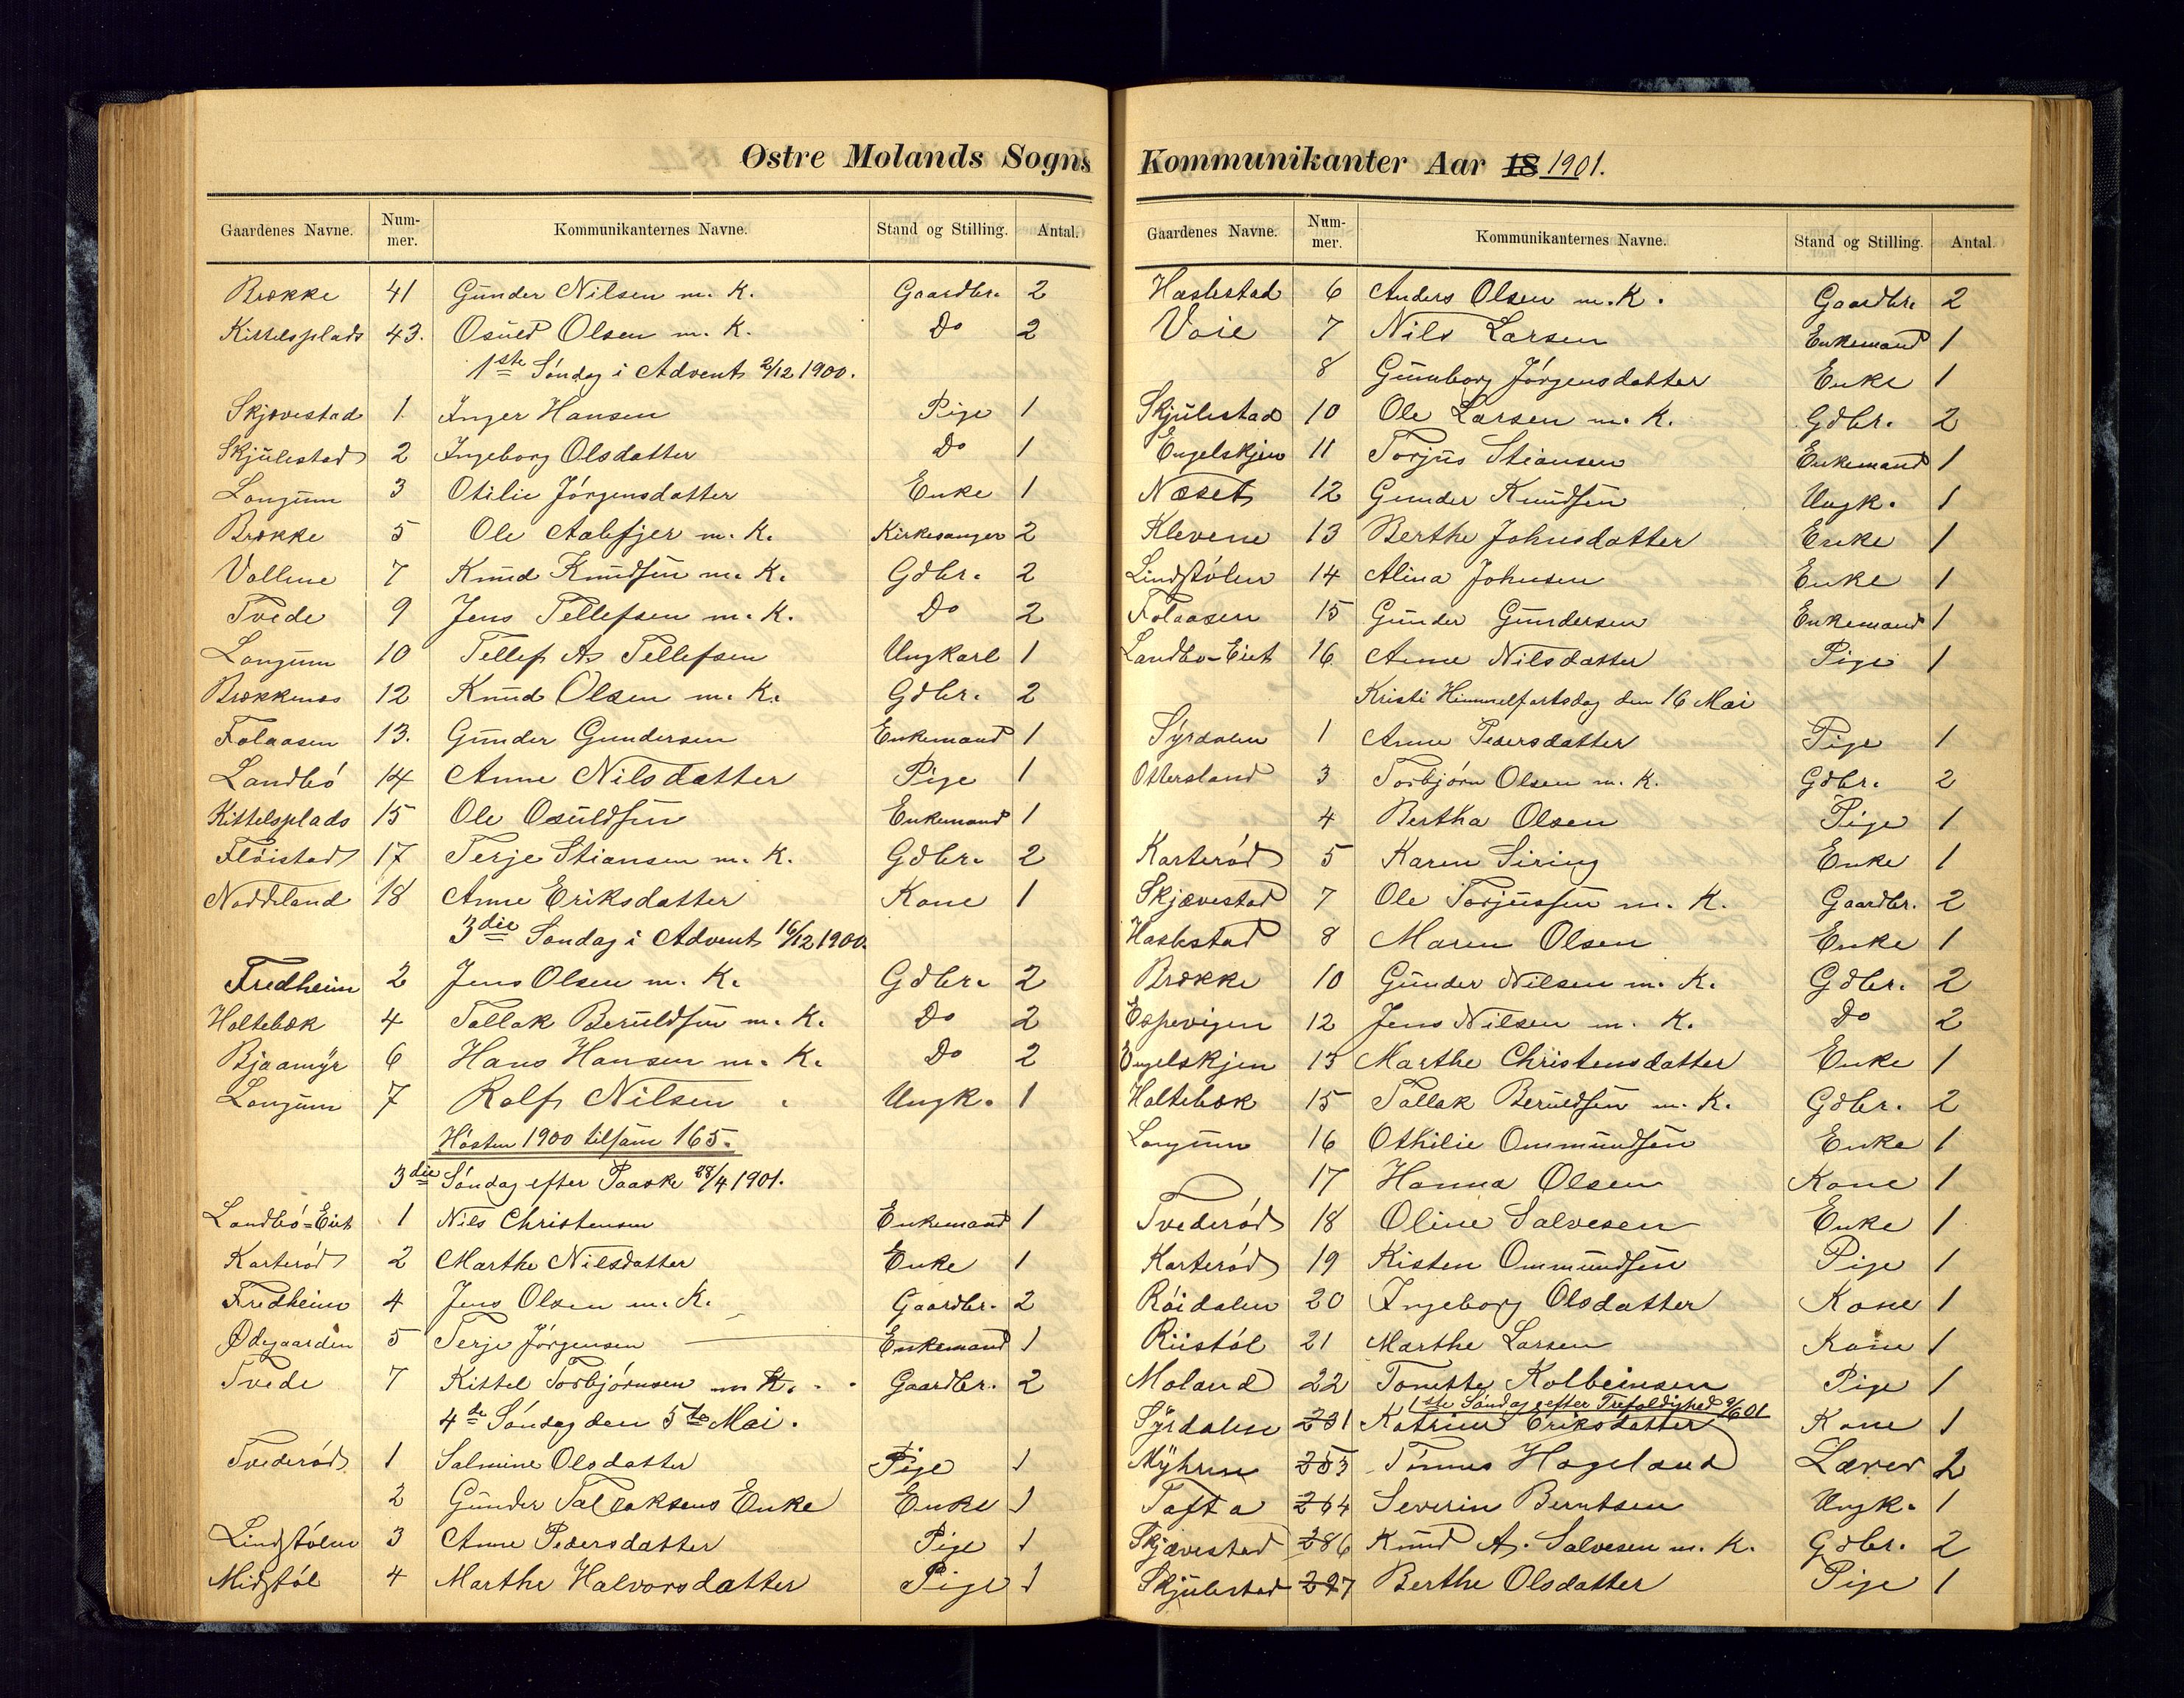 Østre Molands Sogns
Gaardenes Navne. Nummer. Kommunikanternes Navne. Stand og Stilling. Antal.
Brække 41 Gunder Nilsen m. K. Gaardbr. 2
Kittelsplads 43. Osuld Olsen m. K. Do 2
1ste Søndag i Advent 2/12 1900.
Skjævestad 1. Inger Hansen Pige 1
Skjulestad 2 Ingeborg Olsdatter Do 1
Longum 3 Otilie Jørgensdatter Enke 1
Brække 5 Ole Aalefjer m. K. Kirkesanger 2
Vollene 7 Knud Knudsen m. K. Gdbr. 2
Tvede 9 Jens Tellefsen m. K. Do 2
Longum 10 Tellef As Tellefsen Ungkarl 1
Brækkemos 12 Knud Olsen m. K. Gdbr. 2
Folaasen 13. Gunder Gundersen Enkemand 1
Landbø 14 Anne Nilsdatter Pige 1
Kittelsplads 15 Ole Osuldsen Enkemand 1
Fløistad 17 Terje Stiansen m. K. Gdbr. 2
Noddeland 18 Anne Eriksdatter Kone 1
3die Søndag i Advent 16/12 1900.
Fredheim 2 Jens Olsen m. K. Gdbr. 2
Holtebæk 4 Tallak Beruldsen m. K. Do 2
Bjaamyr 6 Hans Hansen m. K. Do 2
Longum 7 Rolf Nilsen Ungk. 1
Høsten 1900 tilsam 165.
3die Søndag efter Paaske 28/4 1901.
Landbø-Eiet 1 Nils Christensen Enkemand 1
Karterød 2 Marthe Nilsdatter Enke 1
Fredheim 4 Jens Olsen m. K. Gaardbr. 2
Ødegaarden 5 Terje Jørgensen Enkemand 1
Tvede 7 Kittel Torbjørnsen m K. Gaardbr. 2
4de Søndag den 5te Mai.
Tvederød 1 Salmine Olsdatter Pige 1
2 Gunder Tallaksens Enke Enke 1
Lindstølen 3 Anne Pedersdatter Pige 1
Midstøl 4 Marthe Halvorsdatter Pige 1
Kommunikanter Aar 18 1901.
Gaardenes Navne. Nummer. Kommunikanternes Navne. Stand og Stilling. Antal.
Haslestad 6 Anders Olsen m. K. Gaardbr. 2
Voie 7 Nils Larsen Enkemand 1
8 Gunborg Jørgensdatter Enke 1
Skjulestad 10 Ole Larsen m. K. Gdbr. 2
Engelskjen 11 Torjus Stiansen Enkemand 1
Næset 12 Gunder Knudsen Ungk. 1
Klevene 13 Berthe Johnsdatter Enke 1
Lindstølen 14 Alina Johnsen Enke 1
Folaasen 15 Gunder Gundersen Enkemand 1
Landbø-Eiet 16 Anne Nilsdatter Pige 1
Kristi Himmelfartsdag den 16 Mai
Syrdalen 1 Anne Pedersdatter Pige 1
Ottersland 3 Torbjørn Olsen m. K. Gdbr. 2
4 Bertha Olsen Pige 1
Karterød 5 Karen Siring Enke 1
Skjævestad 7 Ole Torjussen m. K. Gaardbr. 2
Haslestad 8 Maren Olsen Enke 1
Brække 10 Gunder Nilsen m. K. Gdbr. 2
Espevigen 12 Jens Nilsen m. K. Do 2
Engelskjen 13 Marthe Christensdatter Enke 1
Holtebæk 15 Tallak Beruldsen m. K. Gdbr. 2
Longum 16 Othilie Ommundsen Enke 1
17 Hanna Olsen Kone 1
Tvederød 18 Oline Salvesen Enke 1
Karterød 19 Kisten Ommundsen Pige 1
Røidalen 20 Ingeborg Olsdatter Kone 1
Riistøl 21 Marthe Larsen Kone 1
Moland 22 Tomette Kolbeinsen Pige 1
1ste Søndag efter Trefoldighed 9/6 01
Syrdalen 231 Katrine Eriksdatter Kone 1
Myhren 253 Tønnes Hageland Lærer 2
Tofta 264 Severin Berntsen Ungk. 1
Skjævestad 286 Knud A. Salvesen m. K. Gdbr. 2
Skjulestad 297 Berthe Olsdatter Pige 1